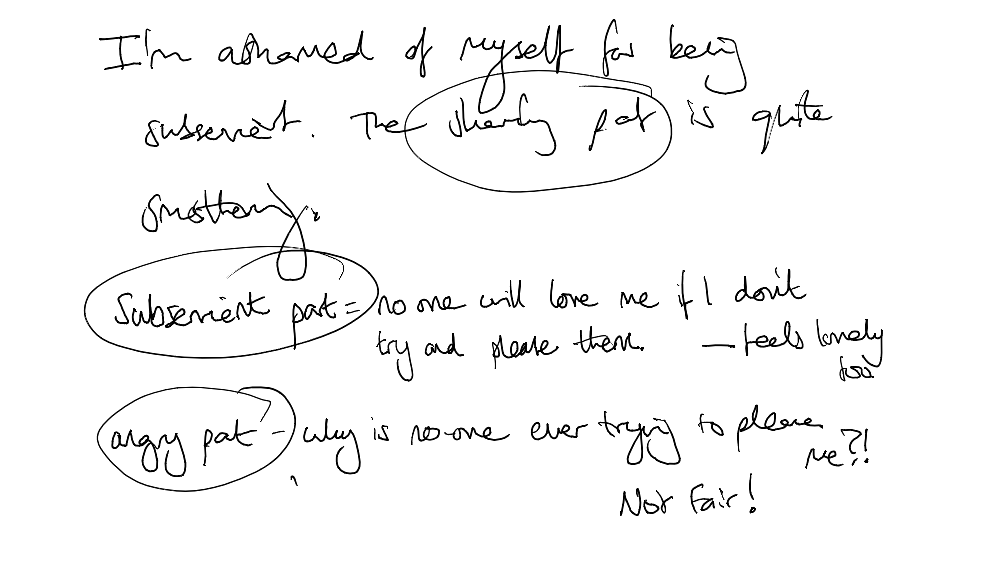 I'm ashamed of myself for being
subservient. The shaming part is quite
smothering.
Subservient part = no one will love me if I don't
try and please them. — feels lonely
too
angry part - why is no-one ever trying to please
me?!
Not Fair!